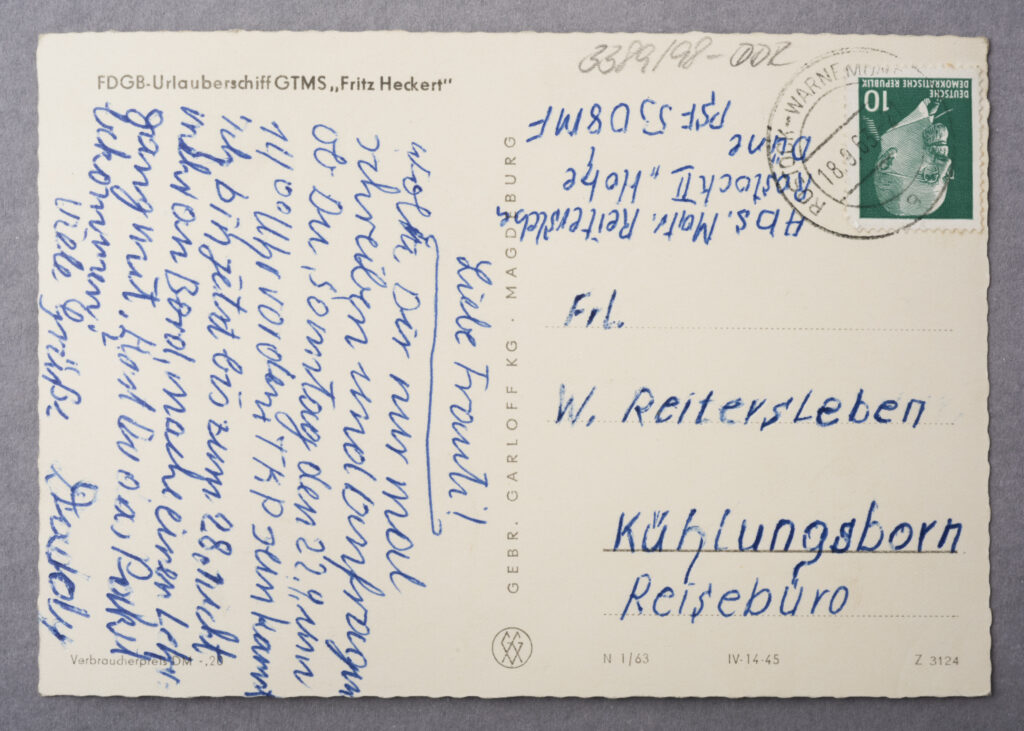 3389/98-DDR
FDGB-Urlauberschiff GTMS „Fritz Heckert"
Liebe Trauti!
wollte Dir nur mal
schreiben und anfragen
ob Du, Sonntag den 22.9. um
14 00 Uhr vor dem TKP sein kannst
ich bin jetzt bis zum 28. nicht
mehr an Bord, mache einen Lehr-
gang mit. Hast Du das Paket
bekommen?
Viele Grüße
Abs. Matr. Reitersleben
Rostock II „Hohe
Düne
PSF 5108 MF
DEUTSCHE
DEMOKRATISCHE REPUBLIK
10
ROSTOCK-WARNEMÜNDE
18.9.63
Frl.
W. Reitersleben
Kühlungsborn
Reisebüro
GEBR. GARLOFF KG · MAGDEBURG
Verbraucherpreis DM -,20
N 1/63
IV-14-45
Z 3124